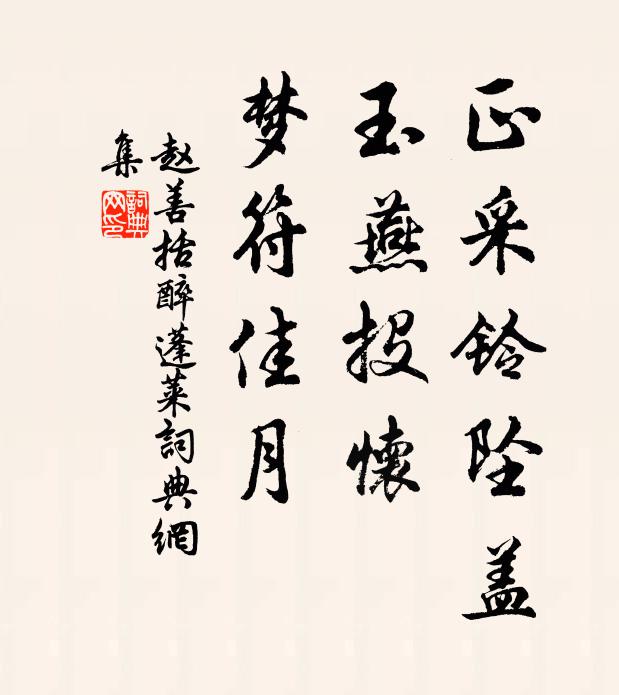 正采铃坠盖
玉燕投懷
梦符佳月
赵善括醉蓬莱詞典網
集
詞典
网印